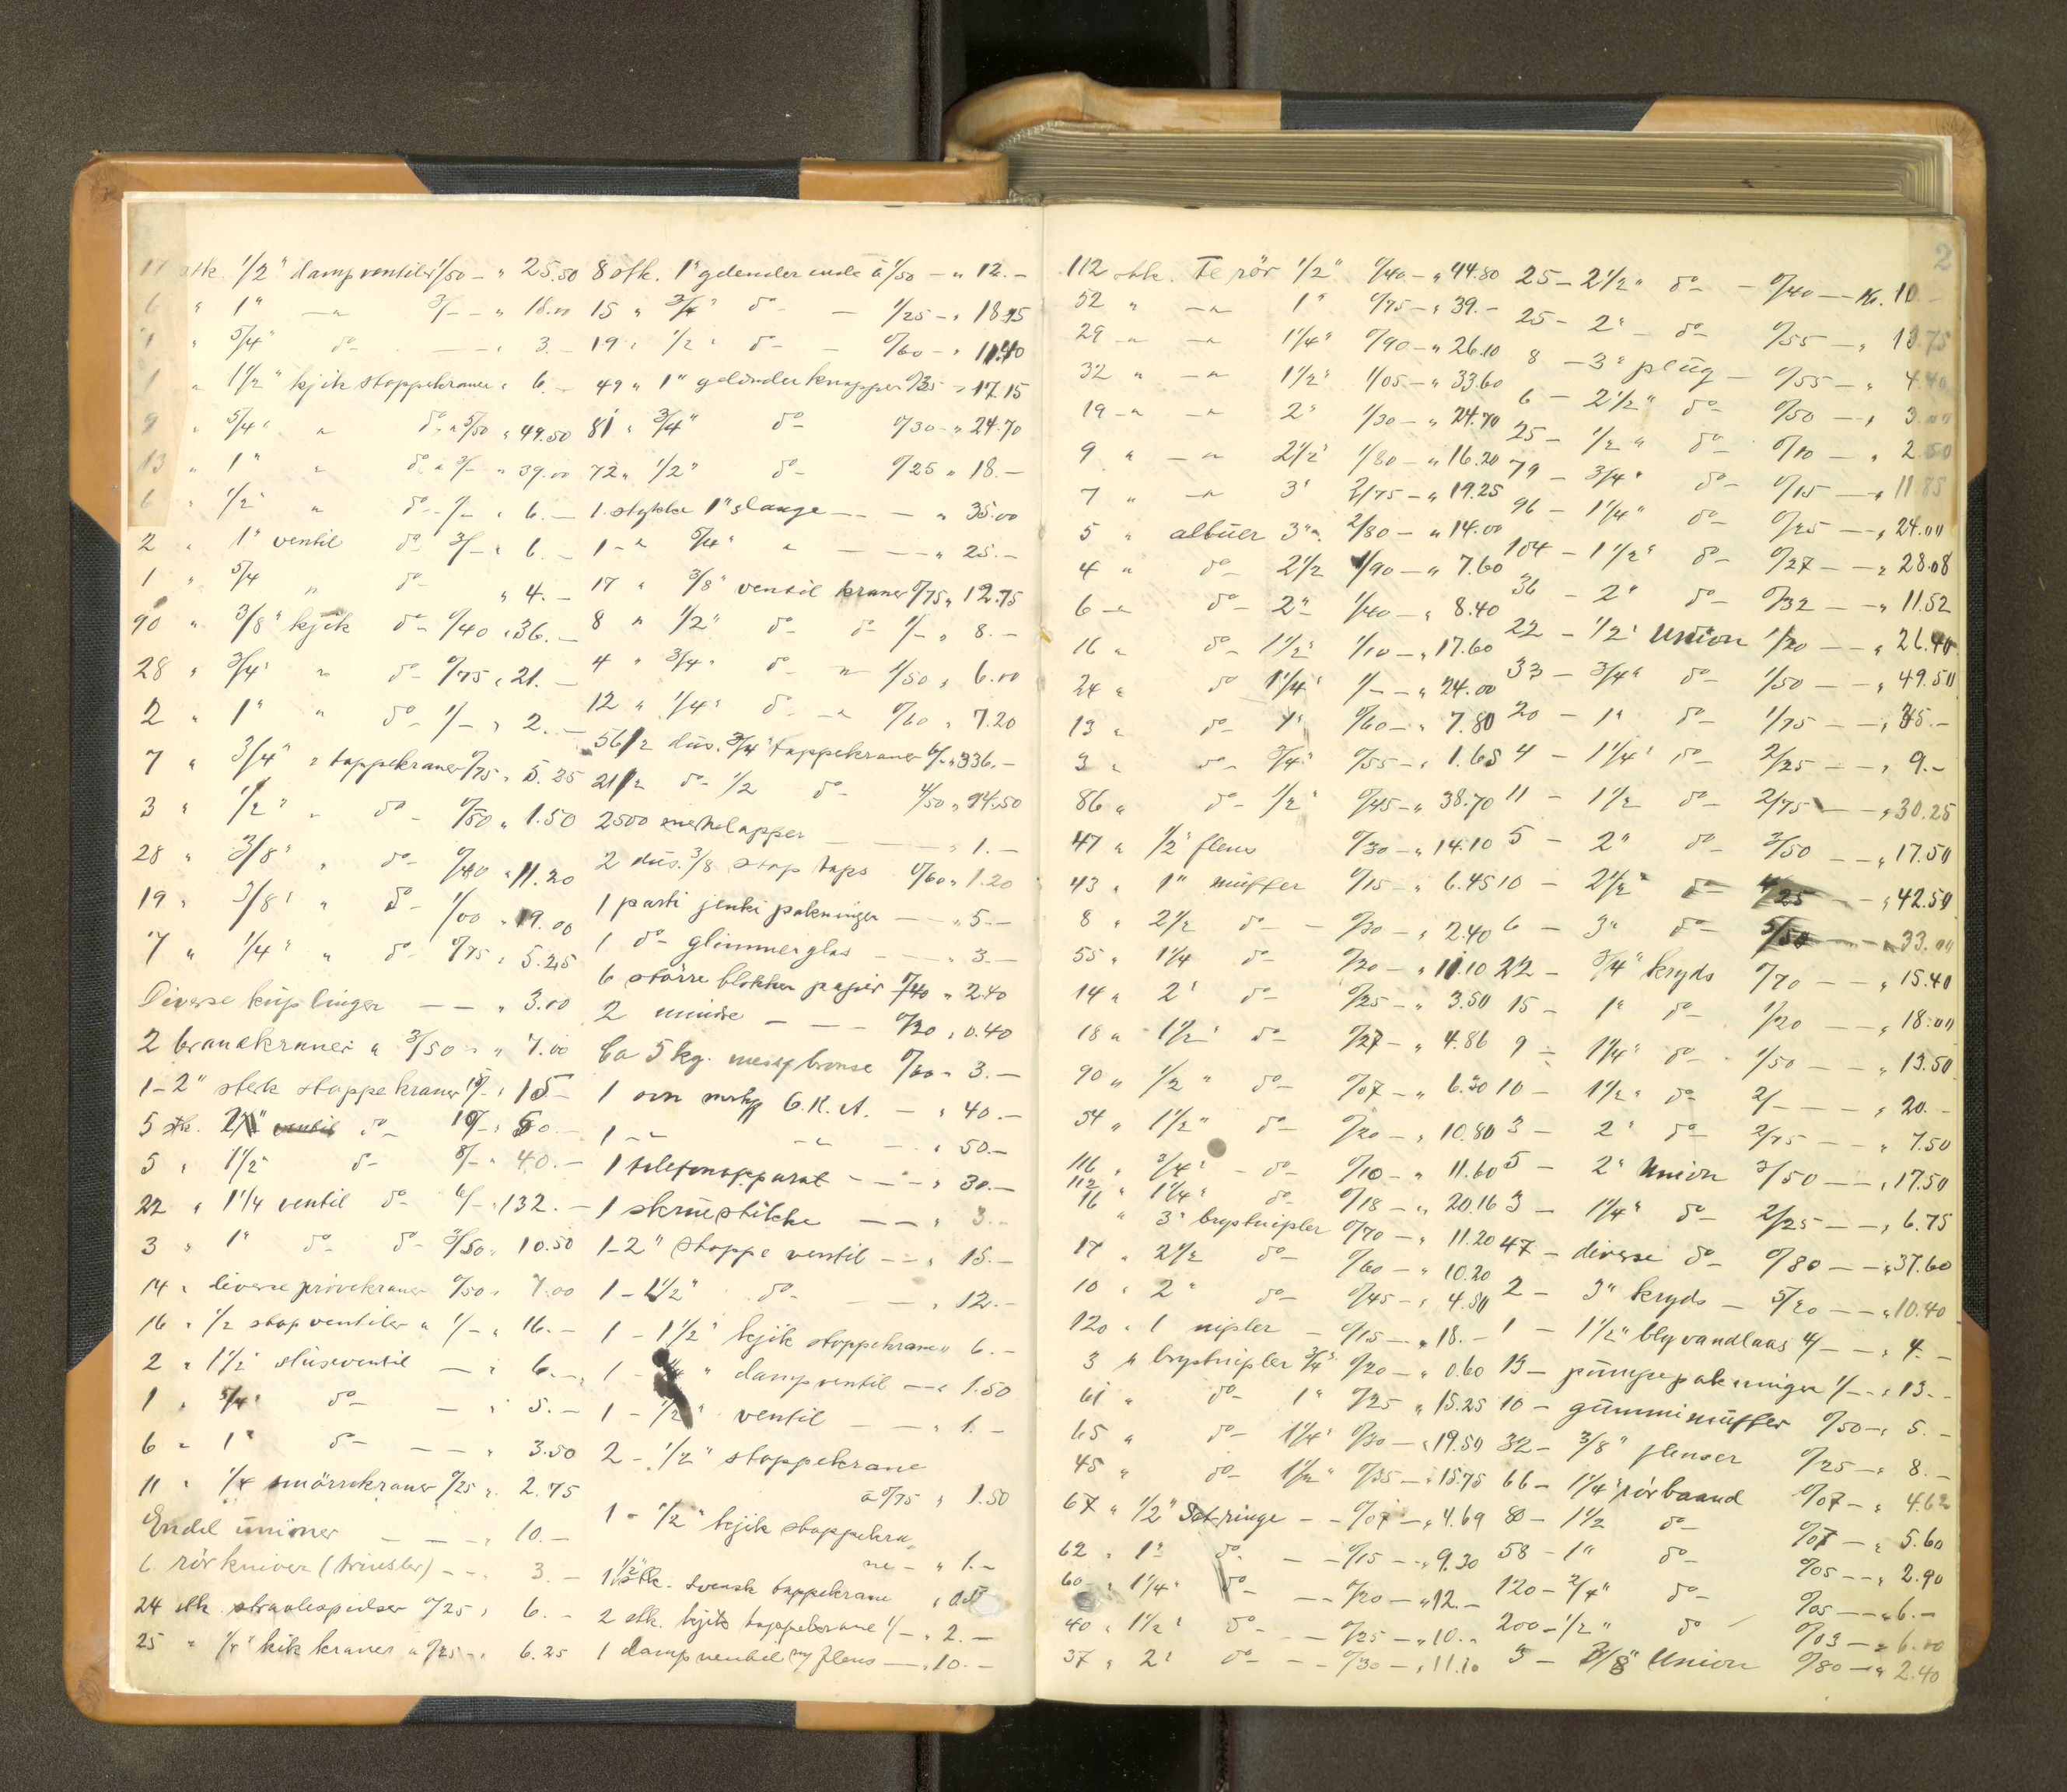 17 stk. 1/2" dampventiler 1/50 — " 25.50
6 " 1" —"— 3/— — " 18.00
1 " 5/4" do — — " 3.—
1 " 1 1/2" kjik stoppekraner " 6.—
9 " 5/4" " do " 5/50 " 49.50
13 " 1" " do " 3/— " 39.00
6 " 1/2" " do — 1/— " 6.—
2 " 1" ventil do 3/— " 6.—
1 " 5/4 " do " 4.—
90 " 3/8" kjik do — 0/40 " 36.—
28 " 3/4" " do — 0/75 " 21.—
2 " 1" " do — 1/— " 2.—
7 " 3/4" " tappekraner 0/75 " 5.25
3 " 1/2" " do — 0/50 " 1.50
28 " 3/8" " do — 0/40 " 11.20
19 " 3/8" " do — 1/00 " 19.00
7 " 1/4" " do — 0/75 " 5.25
Diverse kuplinger — — " 3.00
2 brandkraner a 3/50 — " 7.00
1 – 2" stek stoppekraner 15/— " 15—
5 stk. 2" do — 10/— " 50.—
5 " 1 1/2" do — 8/— " 40.—
22 " 1 1/4 ventil do — 6/— " 132.—
3 " 1" do — do — 3/50 " 10.50
14 " diverse prövekraner 0/50 " 7.00
16 " 1/2 stop ventiler a 1/— " 16.—
2 " 1 1/2" sluseventil — " 6.—
1 " 5/4" do — — " 5.—
6 " 1" do — — — " 3.50
11 " 1/4 smörrekraner 0/25 " 2.75
Endel unioner — — — " 10.—
6 rörkniver (trinsler) — — " 3.—
24 stk. straalespidser 0/25 " 6.—
25 " 1/4" kik kraner a 0/25 — " 6.25
8 stk. 1" gelender ende à 1/50 — " 12.—
15 " 3/4" do — — 1/25 — " 18.75
19 " 1/2" do — — 0/60 — " 11.40
49 " 1" gelinder knapper 0/35 — " 17.15
81 " 3/4" do 0/30 — " 24.70
72 " 1/2" do — 0/25 " 18.—
1 stykke 1" slange — — — " 35.00
1 —" 5/4" " — — — " 25.—
17 " 3/8" ventil kraner 0/75 " 12.75
8 " 1/2" do — do — 1/— " 8.—
4 " 3/4" do — —"— 1/50 " 6.00
12 " 1/4" do — —"— 0/60 " 7.20
56 1/2 dus. 3/4" tappekraner 6/— " 336.—
21 1/2 do — 1/2 do — 4/50 " 94.50
2500 merkelapper — — — " 1.—
2 dus. 3/8 stop taps 0/60 " 1.20
1 parti jenki pakninger — — " 5.—
1 do — glimmerglas — — " 3.—
6 större blokker papir 0/40 " 2.40
2 mindre — — — 0/20 " 0.40
Ca 5 kg. messg bronse 0/60 " 3.—
1 ovn G.K.A. — " 40.—
1 —"— —"— — " 50.—
1 telefonapparat — — — " 30.—
1 skruestikke — — " 3.—
1 – 2" stoppe ventil — — " 15.—
1 – 1 1/2" do — — " 12.—
1 – 1 1/2" kjik stoppekrane " 6.—
1 – " dampventil — " 1.50
1 – 1/2" ventil — " 1.—
2 – 1/2" stoppekrane
à 0/75 " 1.50
1 – 1/2" kjik stoppekra„
ne — " 1.—
1 1/2" stk. svensk tappekrane "
2 stk. kjik tappekrane 1/— " 2.—
1 damp ventil m/ flens — " 10.—
2
112 stk. Te rör 1/2" 0/40 — " 44.80
52 " —"— 1" 0/75 — " 39.—
29 —"— —"— 1 1/4" 0/90 — " 26.10
32 " —"— 1 1/2" 1/05 — " 33.60
19 —"— —"— 2" 1/30 — " 24.70
9 " —"— 2 1/2" 1/80 — " 16.20
7 " —"— 3" 2/75 — " 19.25
5 " albuer 3" 2/80 — " 14.00
4 " do — 2 1/2 1/90 — " 7.60
6 —"— do — 2" 1/40 — " 8.40
16 " do — 1 1/2" 1/10 — " 17.60
24 " do 1 1/4" 1/— — " 24.00
13 " do — 1" 0/60 — " 7.80
3 " do — 3/4" 0/55 — " 1.65
86 " do — 1/2" 0/45 — " 38.70
47 " 1/2" flens 0/30 — " 14.10
43 " 1" muffer 0/15 — " 6.45
8 " 2 1/2 do — — 0/30 — " 2.40
55 " 1 1/4 do — 0/20 — " 11.10
14 " 2" do — 0/25 — " 3.50
18 " 1 1/2" do — 0/27 — " 4.86
90 " 1/2" do — 0/07 — " 6.30
54 " 1 1/2" do — 0/20 — " 10.80
116 " 3/4" — do — 0/10 — " 11.60
112 " 1 1/4" do — 0/18 — " 20.16
16 " 3" brystnipler 0/70 — " 11.20
17 " 2 1/2 do — 0/60 — " 10.20
10 " 2" do — 0/45 — " 4.50
120 " 1 nipler — 0/15 — " 18.—
3 " brystnipler 3/4" 0/20 — " 0.60
61 " do — 1" 0/25 " 15.25
65 " do — 1 1/4" 0/30 — " 19.50
45 " do — 1 1/2" 0/35 — " 15.75
67 " 1/2" Setringe — — 0/07 — " 4.69
62 " 1" do — — — 0/15 — " 9.30
60 " 1 1/4" do — — — 0/20 — " 12.—
40 " 1 1/2" do — — 0/25 — " 10.—
37 " 2" do — — — 0/30 — " 11.10
25 — 2 1/2" do — — 0/40 — Kr. 10—
25 — 2" — do — 0/55 — " 13.75
8 — 3" plug — 0/55 — " 4.40
6 — 2 1/2" do — 0/50 — " 3.00
25 — 1/2" do — 0/10 — " 2.50
79 — 3/4" do — 0/15 — " 11.85
96 — 1 1/4" do — 0/25 — " 24.00
104 — 1 1/2" do — 0/27 — — " 28.08
36 — 2" do — 0/32 — — " 11.52
22 — 1/2" Union 1/20 — — " 26.40
33 — 3/4" do — 1/50 — — " 49.50
20 — 1" do — 1/75 — — " 35.—
4 — 1 1/4" do — 2/25 — — " 9.—
11 — 1 1/2 do — 2/75 — " 30.25
5 — 2" do — 3/50 — — " 17.50
10 — 2 1/2" do — 4/25 — " 42.50
6 — 3" do — 5/50 — " 33.00
22 — 3/4" kryds 0/70 — — " 15.40
15 — 1" do — 1/20 — — " 18.00
9 — 1 1/4" do — 1/50 — — " 13.50
10 — 1 1/2" do — 2/— — — " 20.—
3 — 2" do — 2/75 — — " 7.50
5 — 2" Union 3/50 — — " 17.50
3 — 1 1/4" do — 2/25 — — " 6.75
47 — diverse do — 0/80 — — " 37.60
2 — 3" kryds — 5/20 — — " 10.40
1 — 1 1/2" bly vandlaas 4/— — " 4.—
13 — pumpepakninger 1/— — " 13.—
10 — gummimuffer 0/50 — " 5.—
32 — 3/8" flenser 0/25 — " 8.—
66 — 1 1/4" rörbaand 0/07 — " 4.62
80 — 1 1/2 do — 0/07 — " 5.60
58 — 1" do — 0/05 — — " 2.90
120 — 3/4" do — 0/05 — — " 6.—
200 — 1/2" do 0/03 — " 6.00
3 — 3/8" Union 0/80 — " 2.40